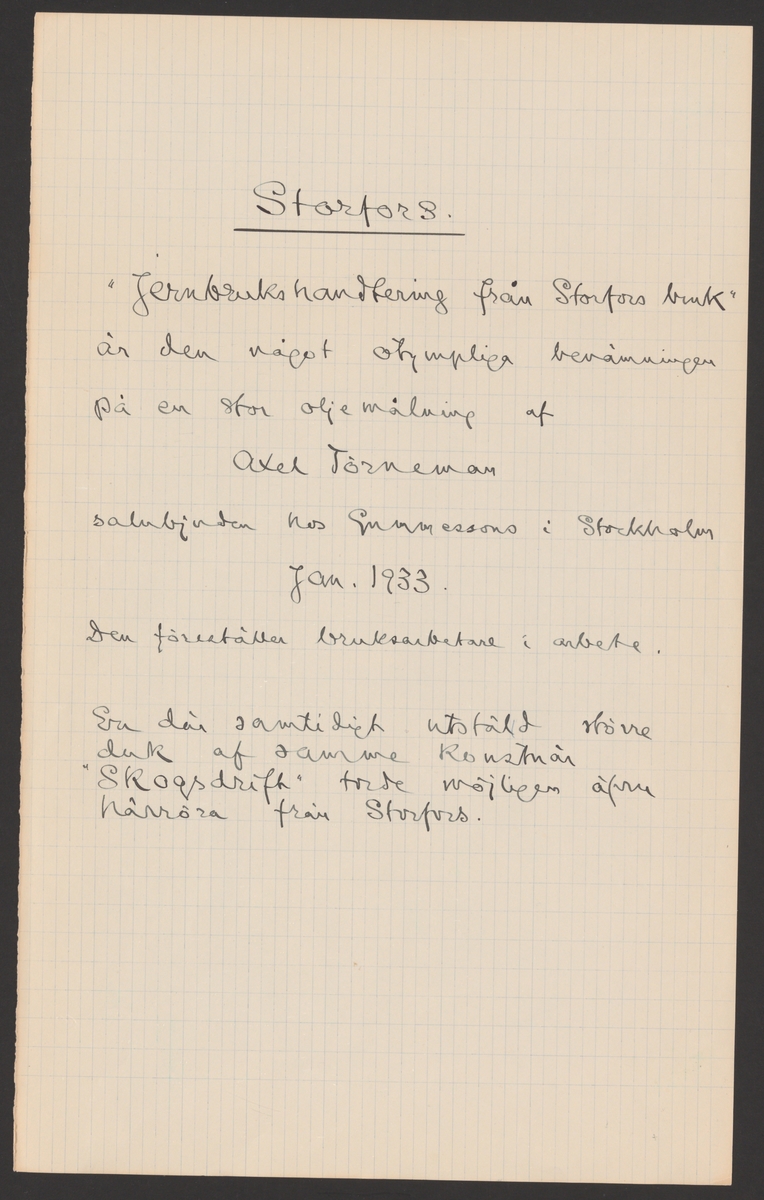 Storfors.
"Jernbrukshandtering från Storfors bruk"
är den något otympliga benämningen
på en stor oljemålning af
Axel Törneman
salubjuden hos Gummessons i Stockholm
Jan. 1933.
Den föreställer bruksarbetare i arbete.
En där samtidigt utstäld större
duk af samme konstnär
"Skogsdrift" torde möjligen äfven
härröra från Storfors.